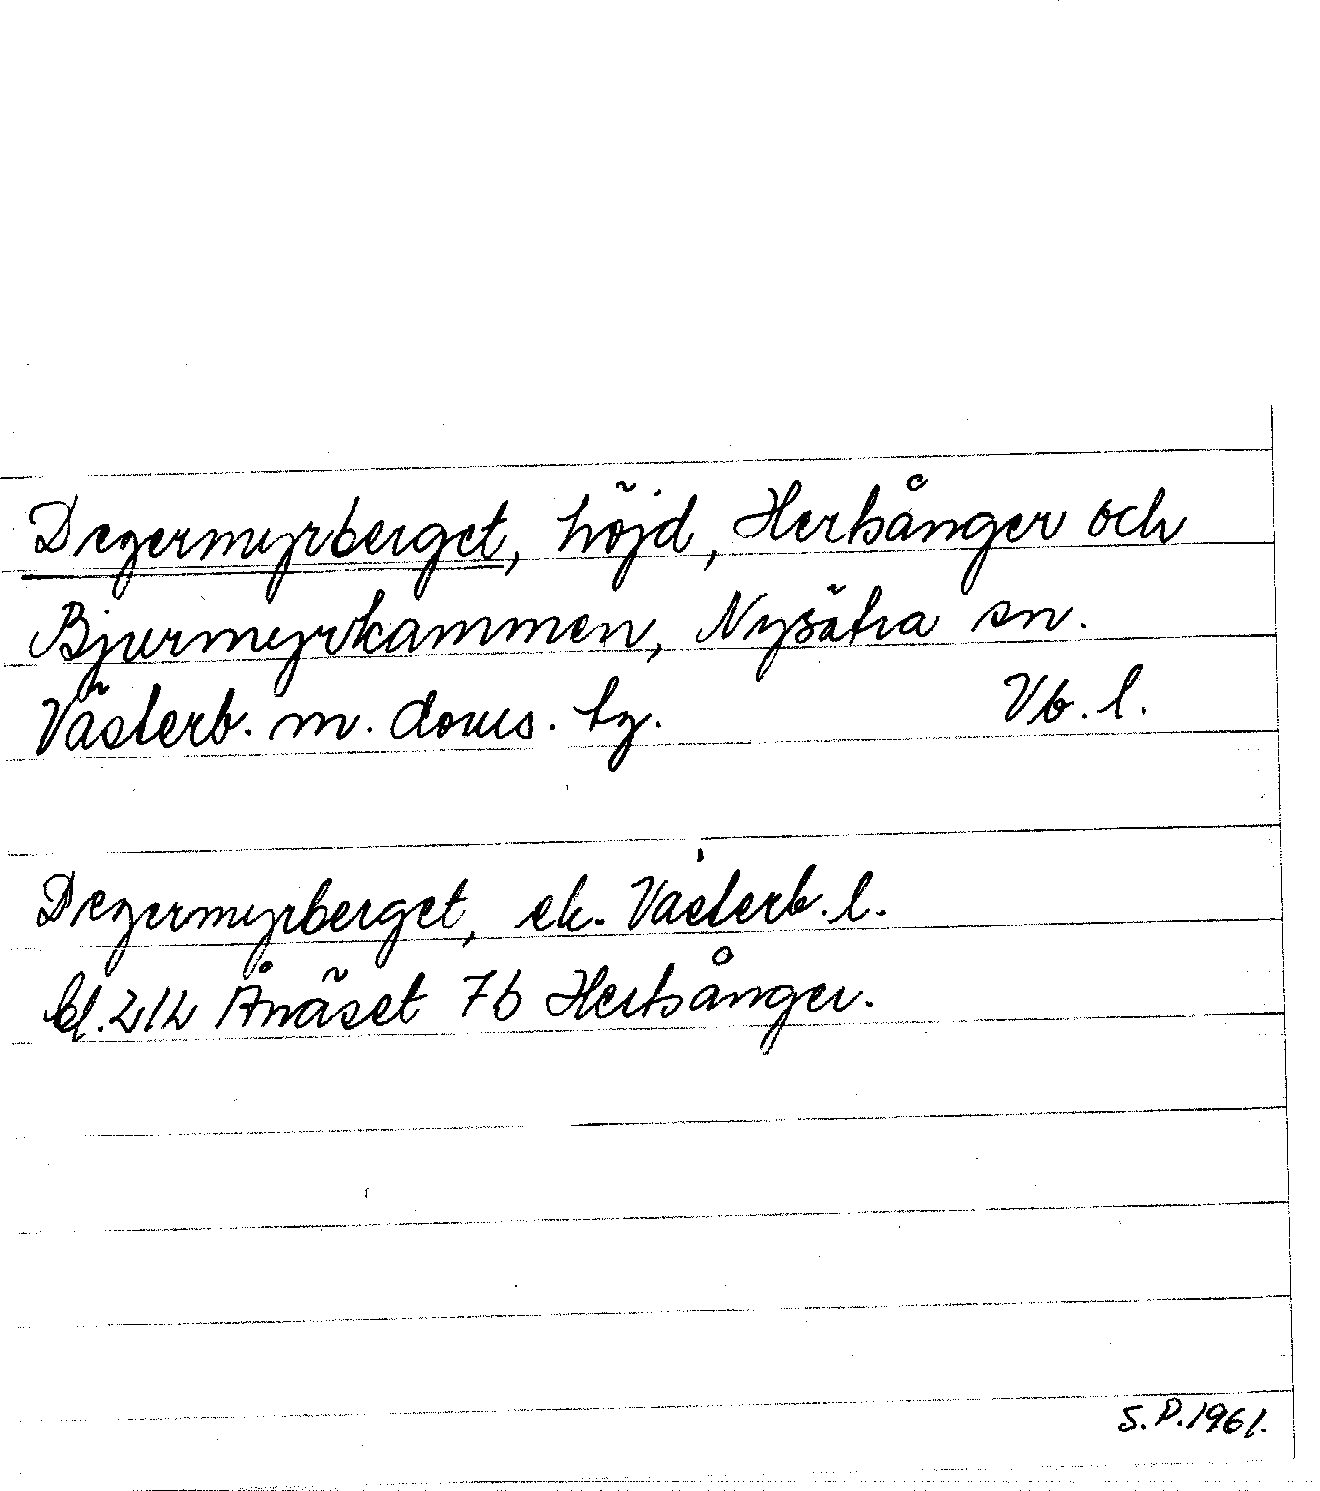 Degermyrberget, höjd, Hertsånger och
Bjurmyrkammen, Nysätra sn.
Västerb. m. doms. tg. Vb. l.
Degermyrberget, ek. Västerb. l.
bl. 212 Ånäset 7b Hertsånger.
S.P. 1961.